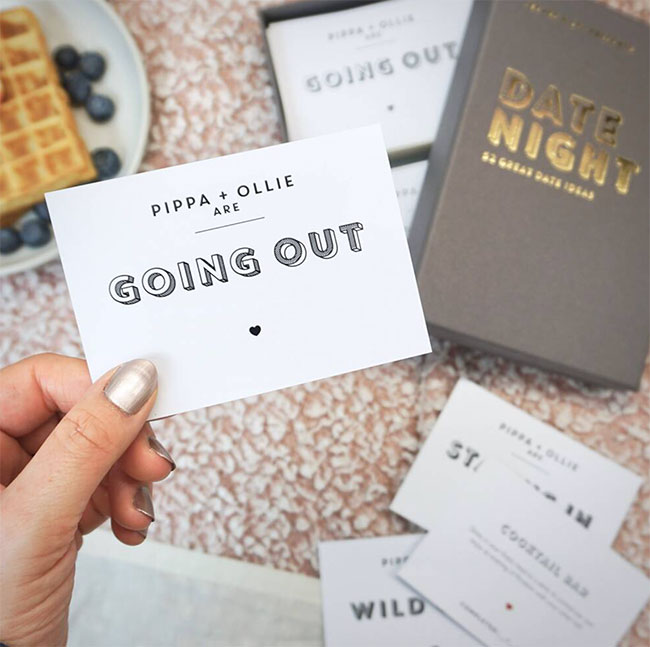 PIPPA + OLLIE
ARE
GOING OUT
PIPPA + OLLIE
ARE
GOING OUT
DATE
NIGHT
52 GREAT DATE IDEAS
PIPPA + OLLIE
ARE
IN
COCKTAIL BAR
COMPLETED
PIPPA
WILD